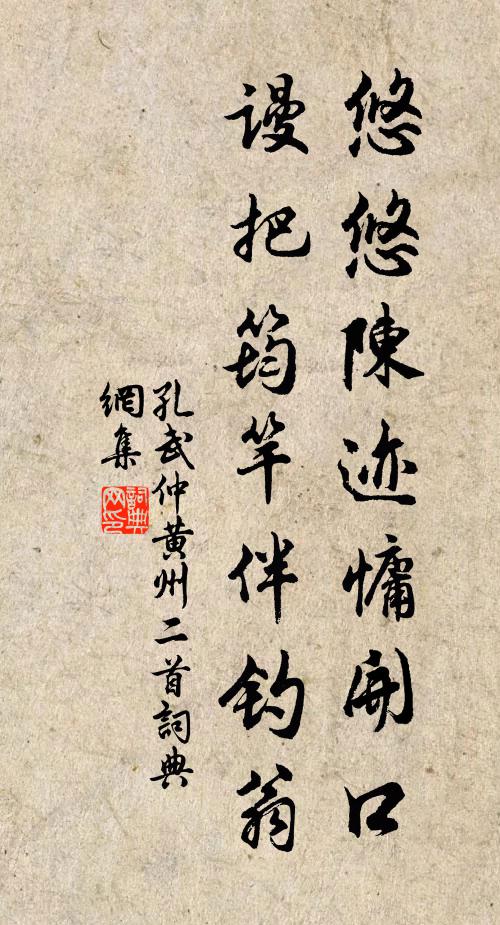 悠悠陳迹慵開口
謾把筠竿伴釣翁
孔武仲黄州二首詞典
網集
詞典
网印